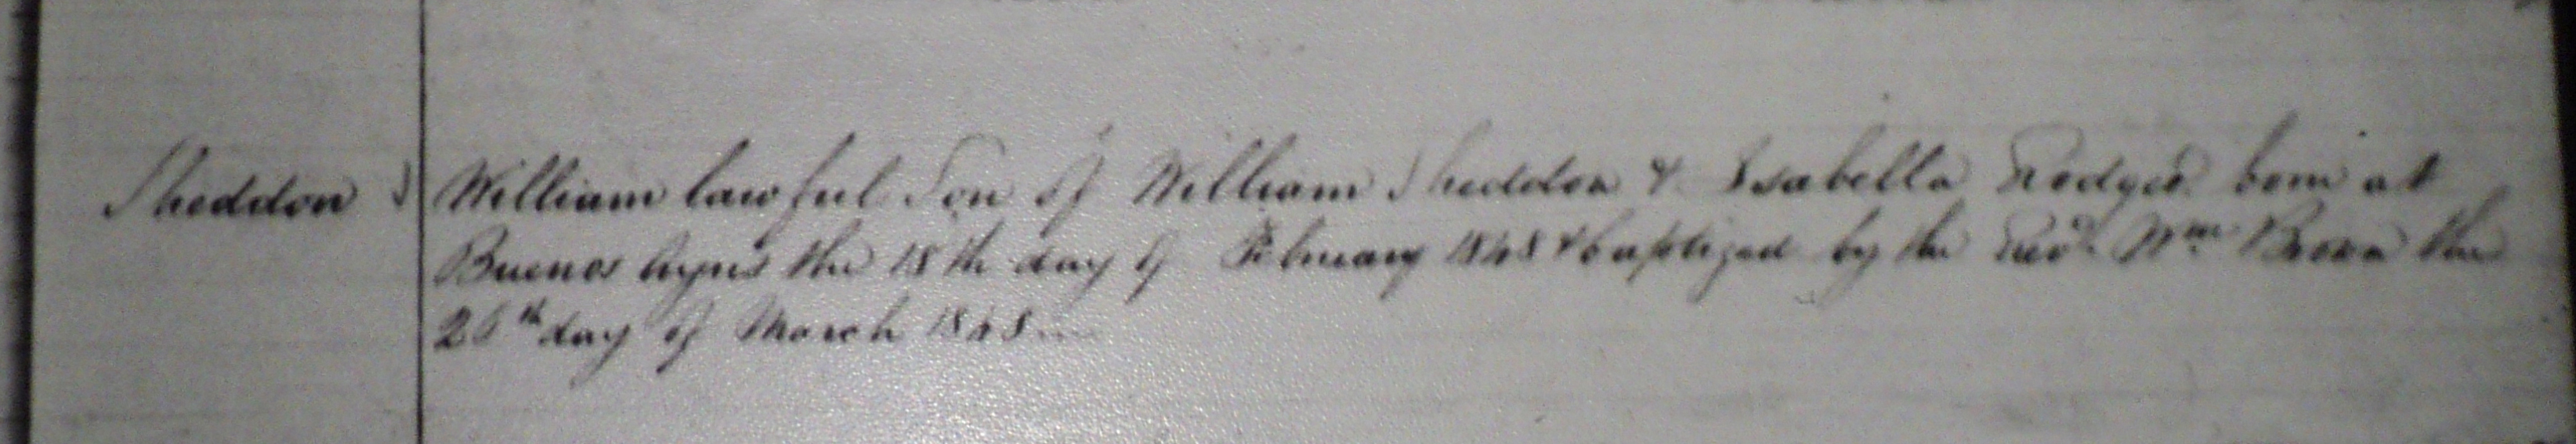 Sheddon William lawful Son of William Sheddon & Isabella Rodger born at
Buenos Ayres the 18th day of February 1848 & baptized by the Revd. Wm Brown the
26th day of March 1848